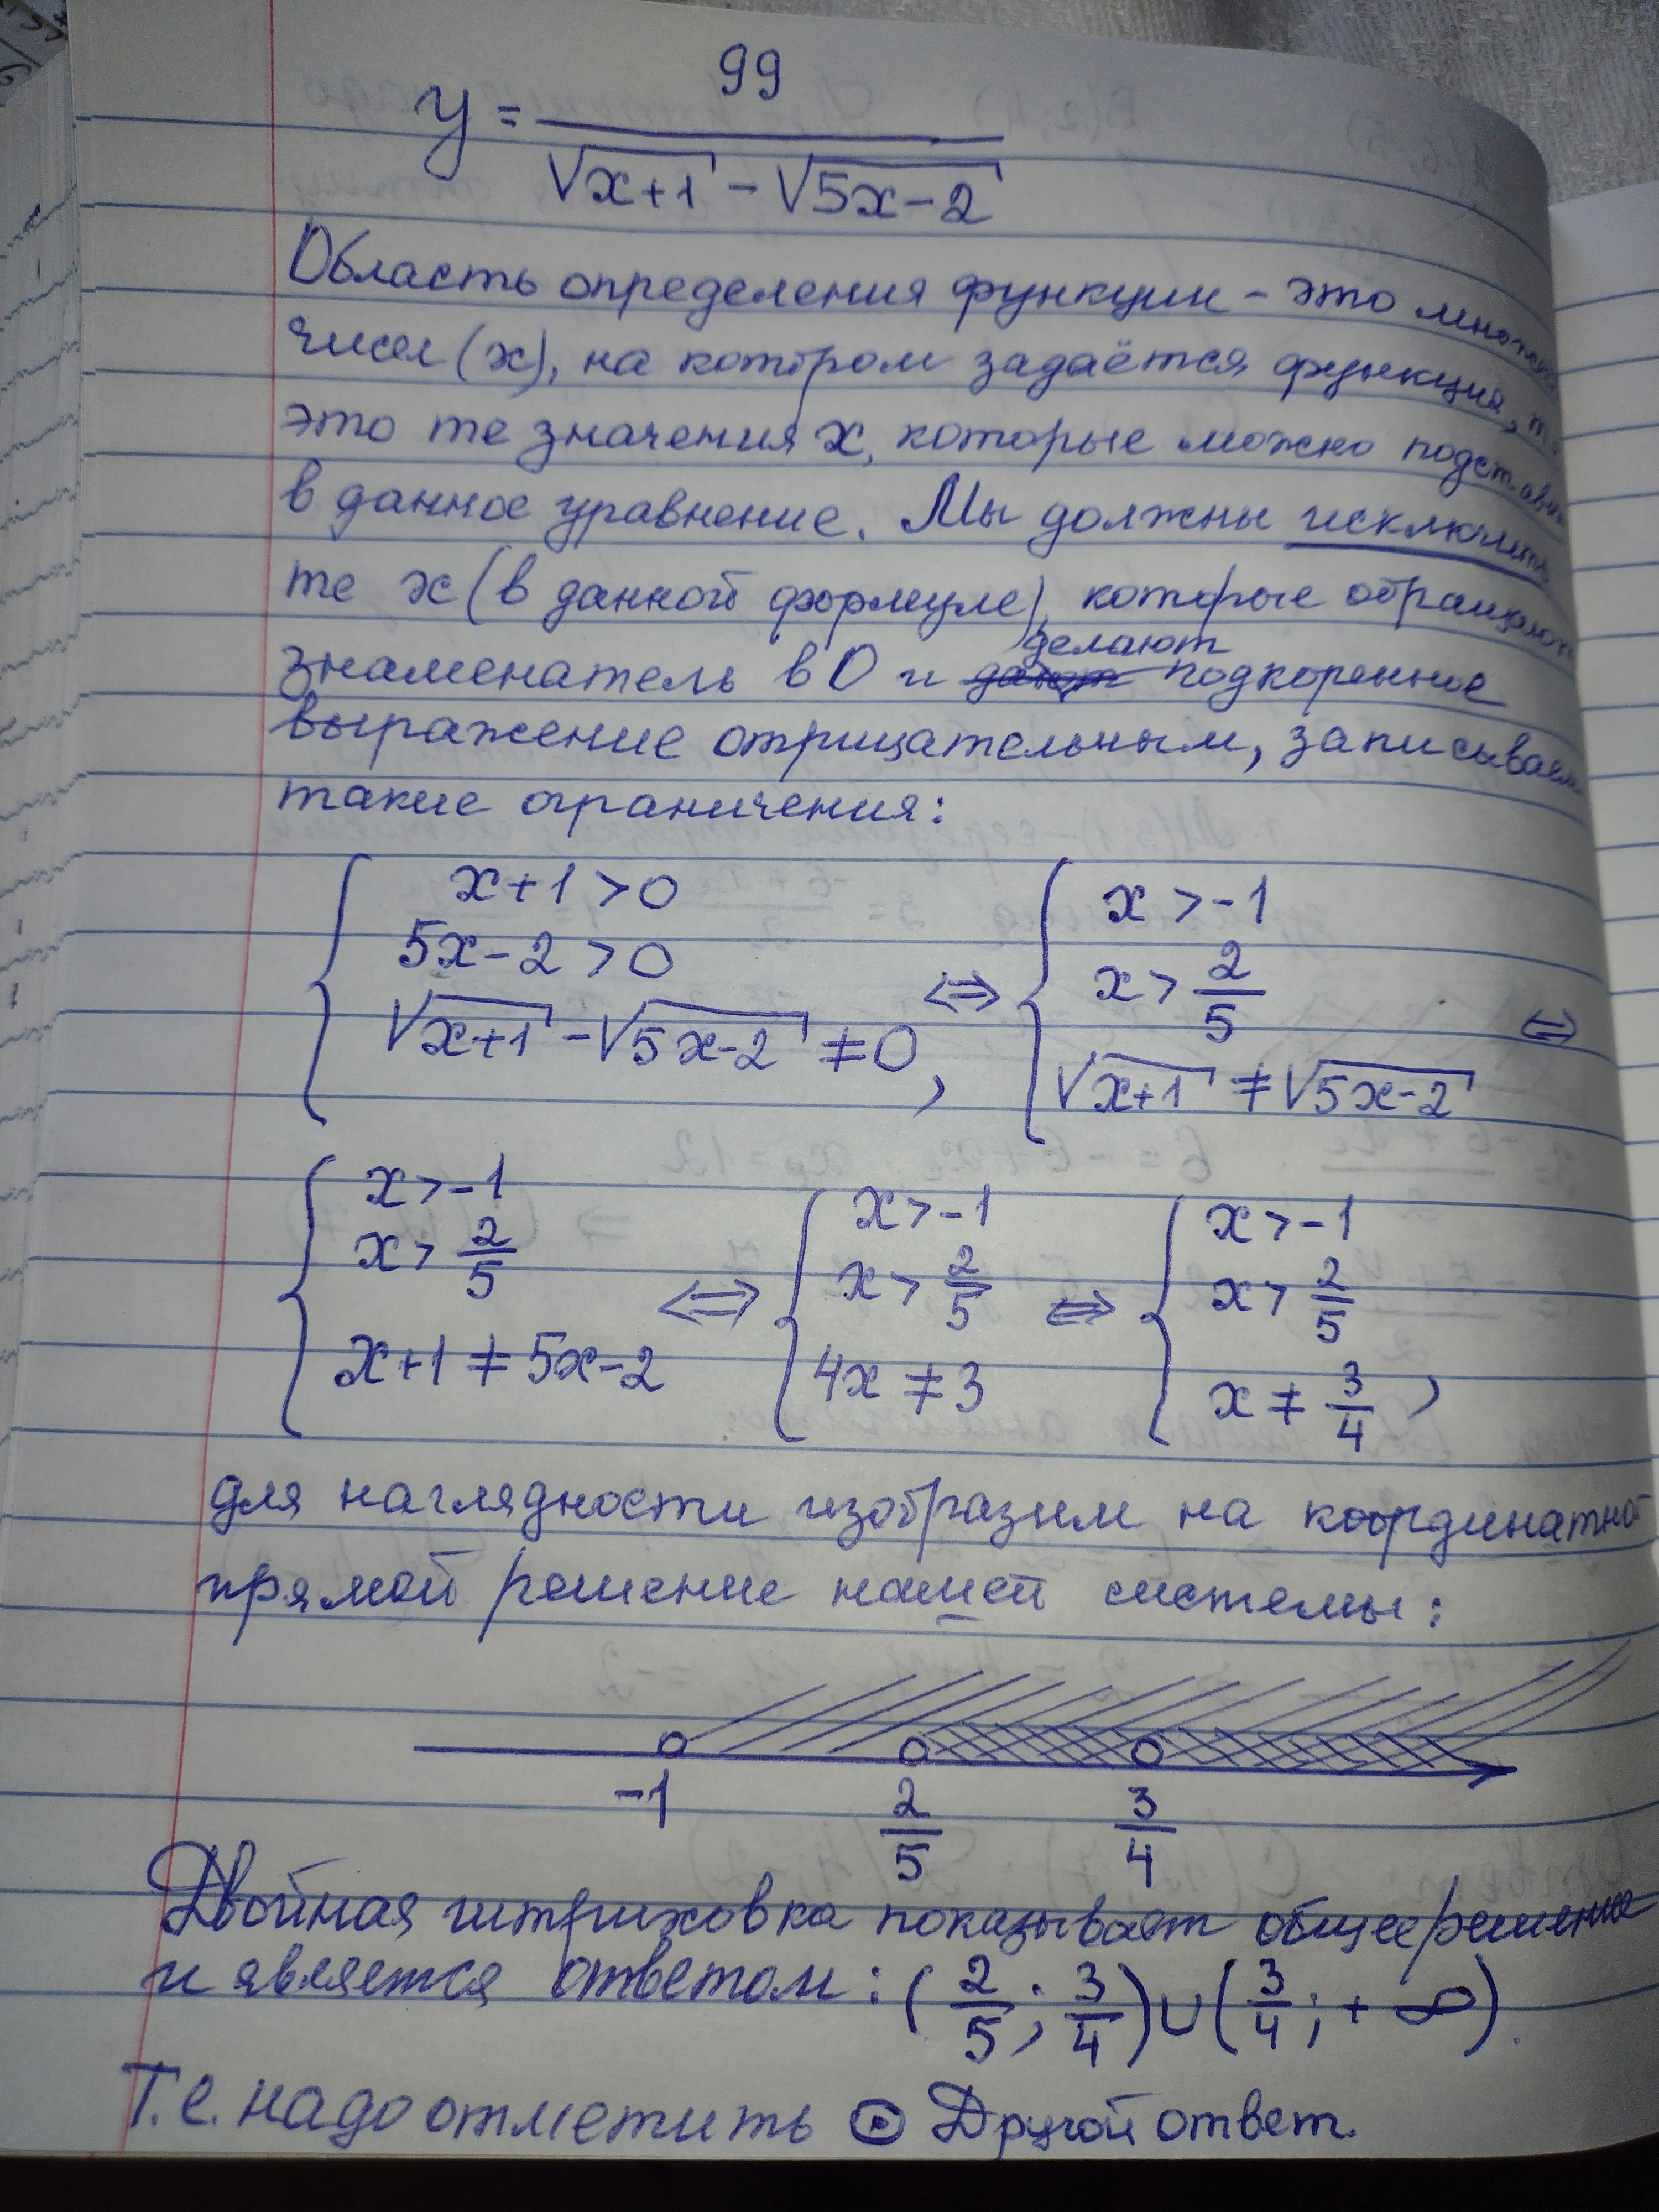 y = 99 / (√(x+1) − √(5x−2))
Область определения функции – это
чисел (x), на котором задаётся функция,
это те значения x, которые можно подставить
в данное уравнение. Мы должны исключить
те x (в данной формуле), которые обращают
знаменатель в 0 и делают подкоренное
выражение отрицательным, записываем
такие ограничения:
{ x+1 > 0; 5x−2 > 0; √(x+1) − √(5x−2) ≠ 0, ⇔ { x > −1; x > 2/5; √(x+1) ≠ √(5x−2) ⇔
{ x > −1; x > 2/5; x+1 ≠ 5x−2 ⇔ { x > −1; x > 2/5; 4x ≠ 3 ⇔ { x > −1; x > 2/5; x ≠ 3/4,
для наглядности изобразим на координатной
прямой решение нашей системы:
−1 2/5 3/4
Двойная штриховка показывает общее решение
и является ответом: (2/5; 3/4) ∪ (3/4; + ∞).
Т.е. надо отметить ⊙ Другой ответ.